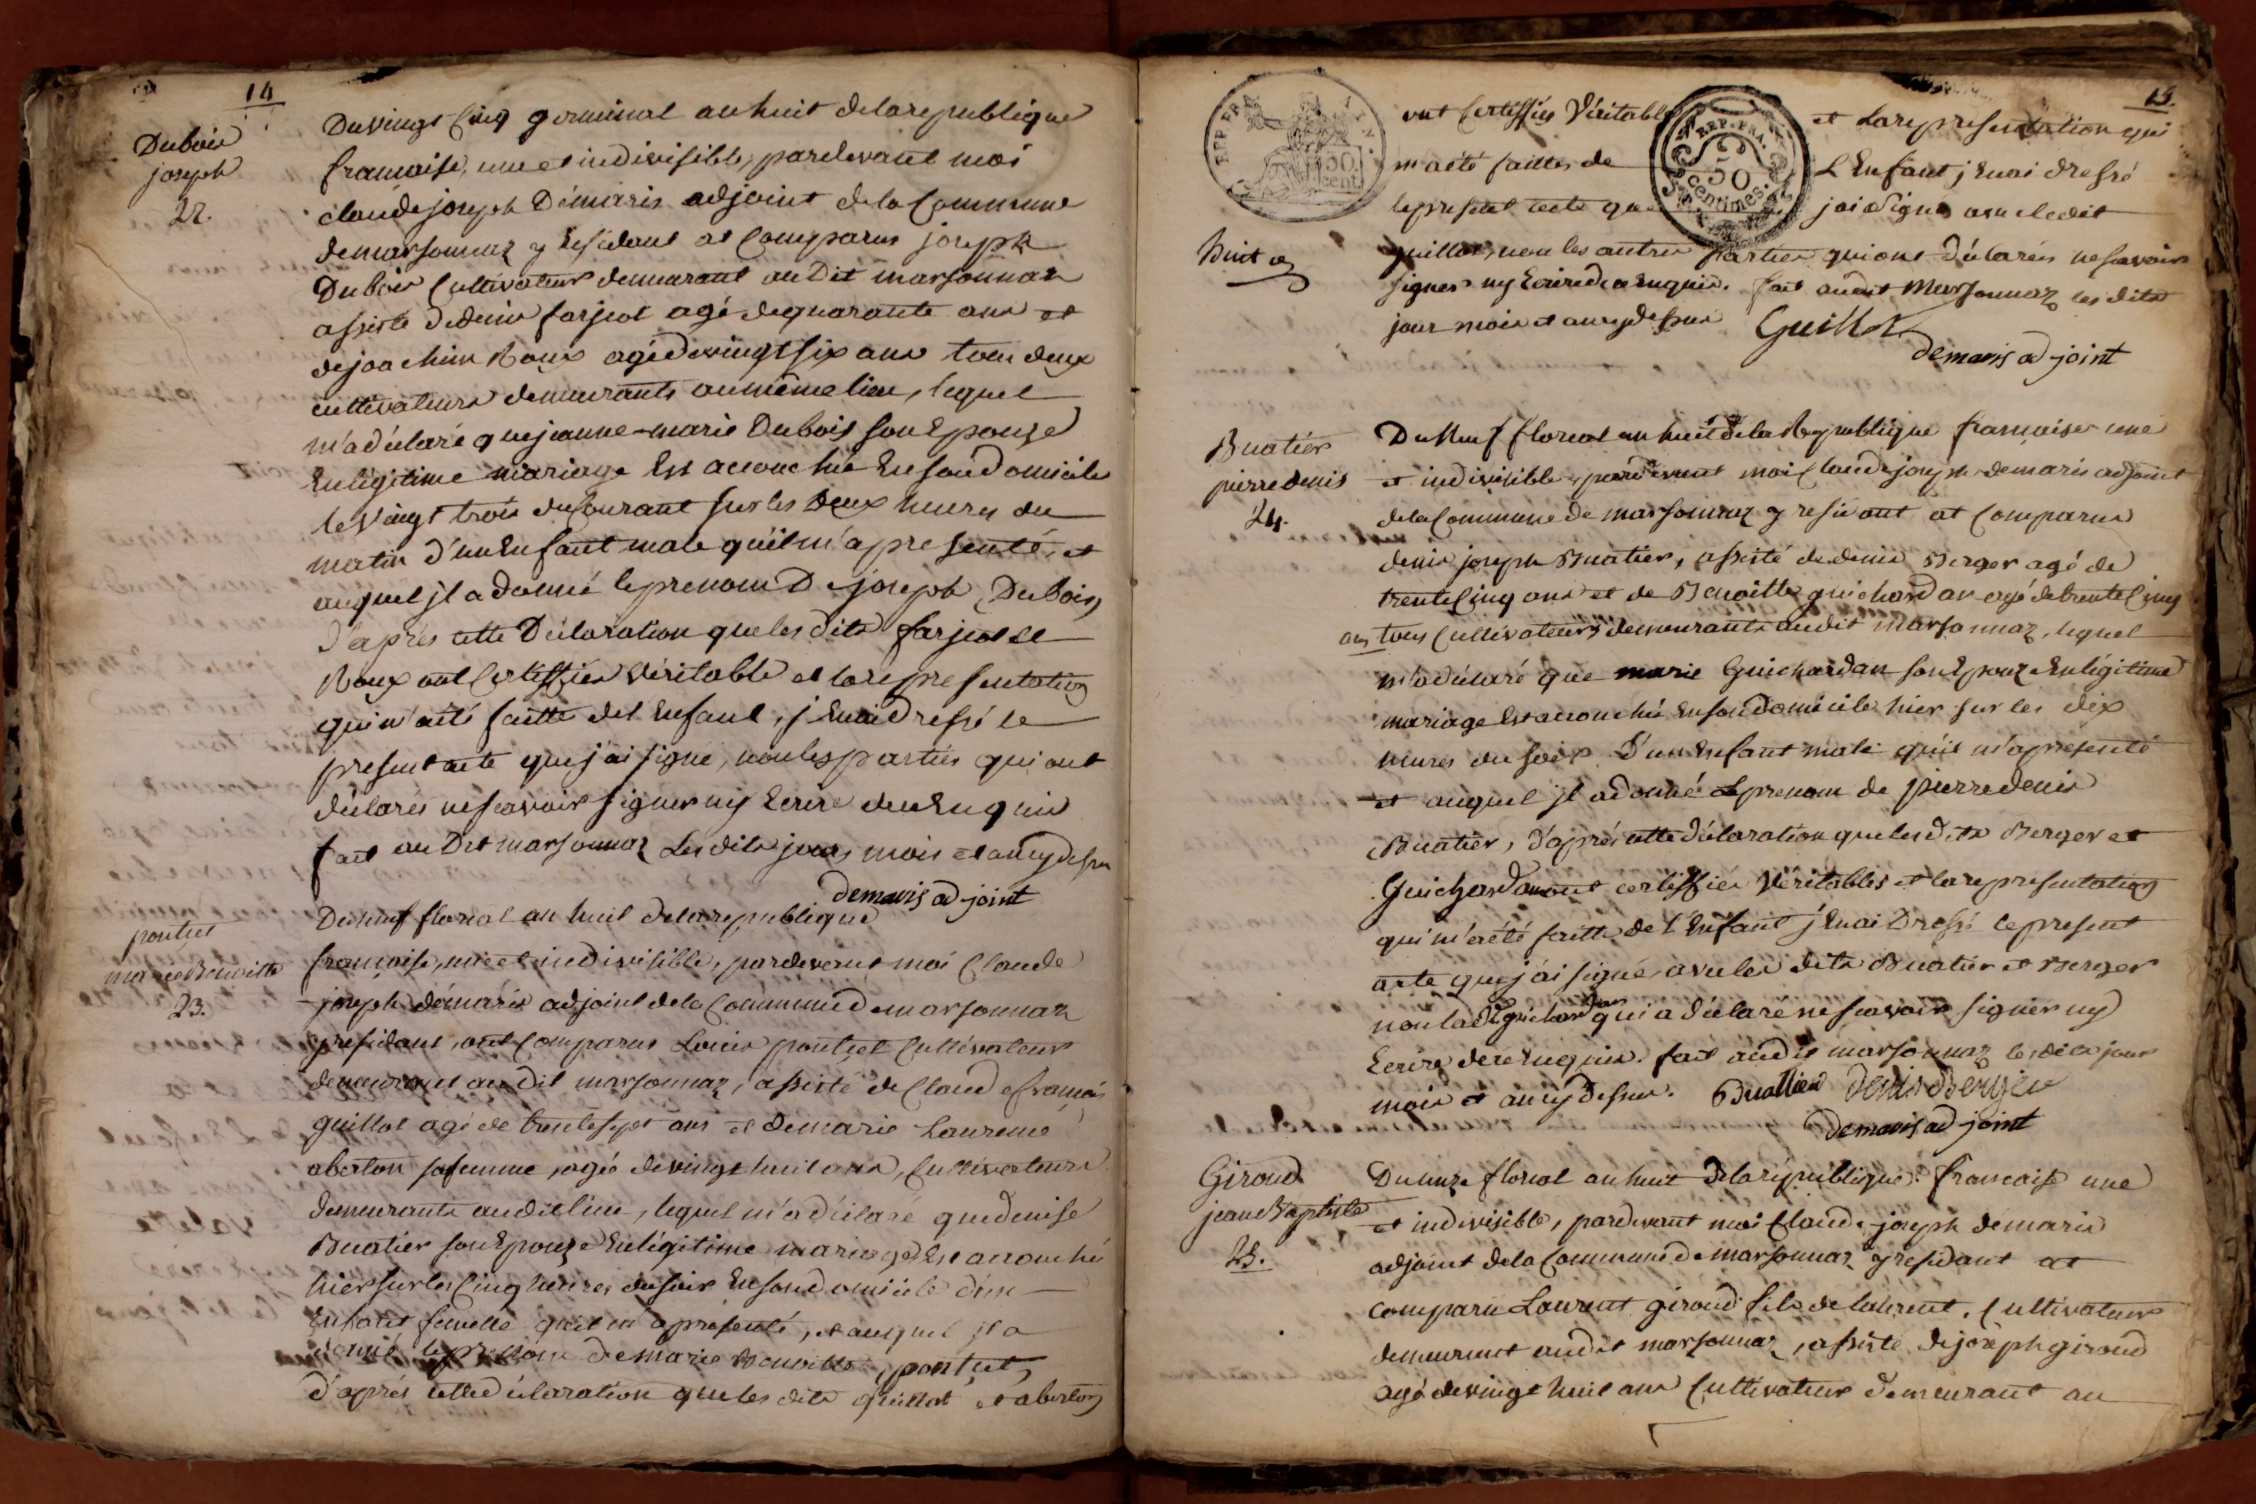 14
Dubois
joseph
22.
Du vingt Cinq germinal an huit de la republique
francaise, une et indivisible, pardevant moi
claude joseph Démaris adjoint de la Commune
de marsonnaz y residant at Comparus joseph
Dubois Cultivateur demeurant au Dit marsonnaz
assisté de denis farjeot agé de quarante ans et
de joachim Roux agé de vingt six ans tous deux
cultivateurs demeurants au même lieu, lequel
m'a déclaré que jeanne-marie Dubois son Epouse
En légitime mariage Est accouchée En son domicile
le vingt trois du Courant sur les deux heures du
matin d'un Enfant male qu'il m'a presenté, et
auquel jl a donné le prenom De joseph Dubois,
d'après cette Déclaration que les dits farjeot et
Roux ont Certiffiés véritable et la representation
qui m'a été faitte de l'Enfant, j'En ai dressé le
present acte que j'ai signé, non les parties qui ont
déclarés ne scavoir signer ny Ecrire de ce Enquis
fait au Dit marsonnaz Les dits jours mois et an cy dessus
demaris adjoint
pontet
marie Benoitte
23.
Du neuf floreal an huit de la republique
francaise, une et indivisible, pardevant moi Claude
joseph démaris adjoint de la Commune de marsonnaz
y residant, ont Comparus Louis pontet Cultivateur
demeurant au dit marsonnaz, assisté de Claude francois
guillot agé de trente sept ans et de marie Laurence
aberton sa femme, agée de vingt huit ans, Cultivateurs
demeurants au dit lieu, lequel m'a déclaré que denise
Buatier son Epouse En légitime mariage Est accouchée
hier sur les Cinq heures du soir En son domicile d'un
Enfant femelle qu'il m'a presenté, et auquel jl a
donné le prenom de marie Benoitte, pontet,
d'après cette déclaration que les dits guillot et aberton
15.
REP. FRA.
50
cent
REP. FRA.
50
centimes.
ont Certiffiés Véritable et la representation qui
m'a été faitte de L'Enfant j'En ai dressé
le present acte que j'ai Signé avec le dit
huit
guillot, non les autres parties qui ont déclarés ne scavoir
signer ny Ecrire de ce Enquis. fait au dit Marsonnaz les dits
jour mois et an cy dessus Guillot
demaris adjoint
Buatier
pierre denis
24.
Du Neuf floreal an huit de la Republique francaise une
et indivisible, pardevant moi Claude joseph demaris adjoint
de la Commune de marsonnaz y residant at Comparus
denis joseph Buatier, assisté de denis Berger agé de
trente Cinq ans et de Benoitte guichardan agé de trente Cinq
ans tous Cultivateurs demeurants au dit marsonnaz, lequel
m'a déclaré que marie Guichardan son Epouze En légitime
mariage Est accouchée En son domicile hier sur les dix
heures du soir D'un Enfant male qu'il m'a presenté
et auquel jl a donné Le prenom de pierre denis
Buatier, d'après cette déclaration que les dits Berger et
Guichardan ont certiffiés Véritables et la representation
qui m'a été faitte de l'Enfant j'En ai Dressé le present
acte que j'ai signé avec les dits Buatier et Berger
non la dte guichardan qui a déclaré ne scavoir signer ny
Ecrire de ce Enquis. fait au dit marsonnaz les dits jour
mois et an cy dessus. Buattier denis Berger
demaris adjoint
Giroud
jean Baptiste
25.
Du onze floreal an huit de la république francaise une
et indivisible, pardevant moi Claude joseph démaris
adjoint de la Commune de marsonnaz y residant at
comparu Laurent giroud fils de laurent, Cultivateur
demeurant au dit marsonnaz, assisté de joseph giroud
agé de vingt huit ans Cultivateur demeurant au